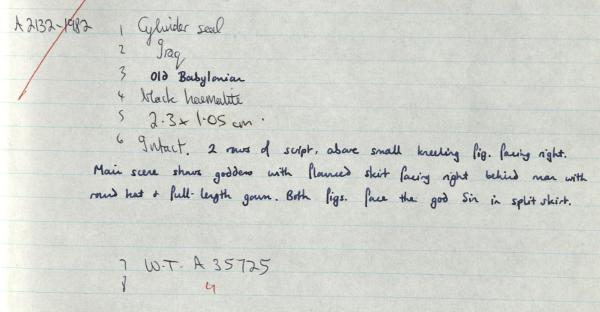 A2132-1982 1 Cylinder seal
2 Iraq
3 Old Babylonian
4 Black haematite
5 2.3 x 1.05 cm.
6 Intact. 2 rows of script, above small kneeling fig. facing right.
Main scene shows goddess with flounced skirt facing right behind man with
round hat & full-length gown. Both figs. face the god Sin in split skirt.
7 W.T. A 35725
8 4